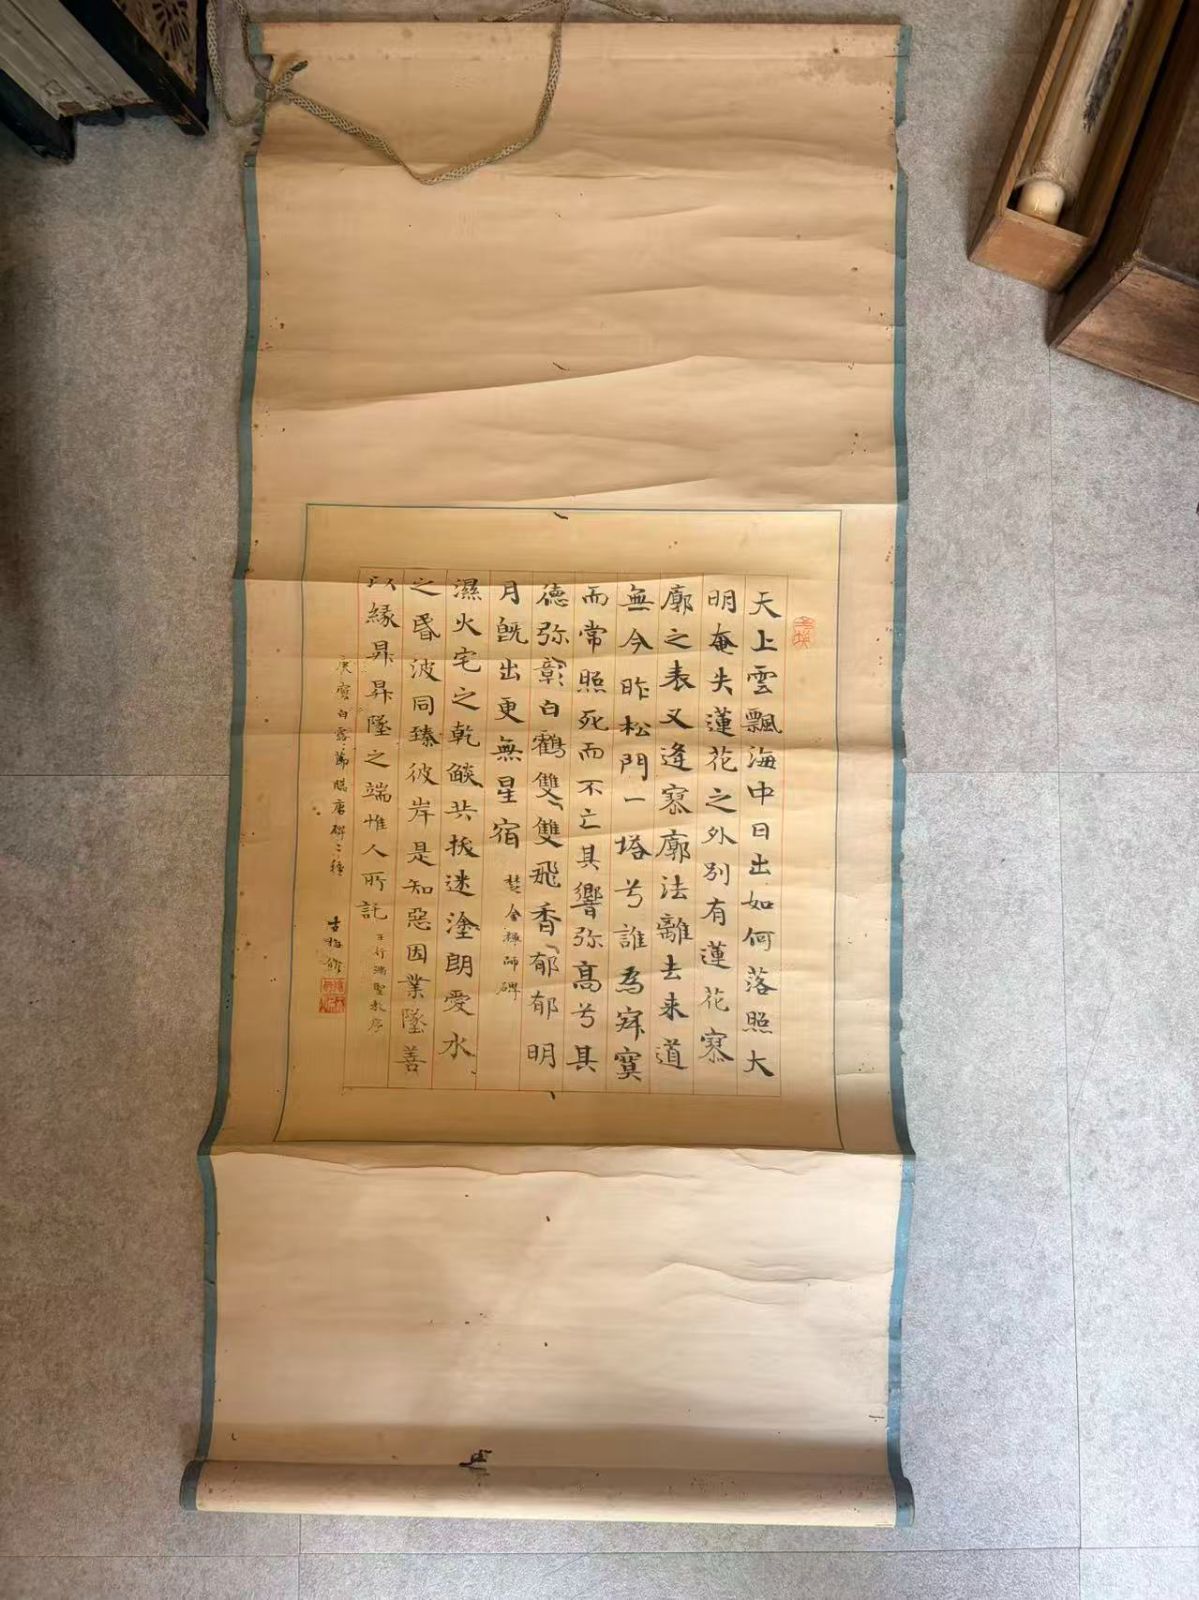 天上雲飄海中日出如何落照大
明奄失蓮花之外別有蓮花寥
廓之表又逢寥廓法離去来道
無今昨松門一塔兮誰為寂寞
而常照死而不亡其響弥高兮其
德弥彰白鶴雙雙飛香郁郁明
月旣出更無星宿
楚金禅師碑
濕火宅之乾燄共拔迷塗朗愛水
之昏波同臻彼岸是知惡因業墜善
以縁昇昇墜之端惟人所託
王行滿聖教序
庚寅白露節臨唐碑二種